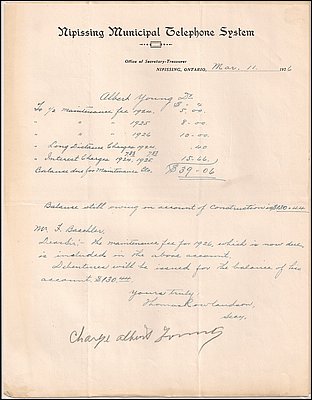 Nipissing Municipal Telephone System
Office of Secretary-Treasurer
NIPISSING, ONTARIO, Mar. 16 1926
Albert Young Dr.
To ½ maintenance fee 1924. 5.00.
" " " 1925 8.00.
" " " 1926 10.00.
" Long Distance Charges 1924 .40
" Interest Charges 1924, 1925 15.66.
Balance due for Maintenance Etc. $39.06
Balance still owing on account of Construction is $130.44
Mr. F.
Dear Sir:- the maintenance fee for 1926, which is now due,
is included in the above account.
Debentures will be issued for the balance of his
account, $130.44.
Yours truly
Thomas Rowlandson,
Secy.
Charge Albert Young